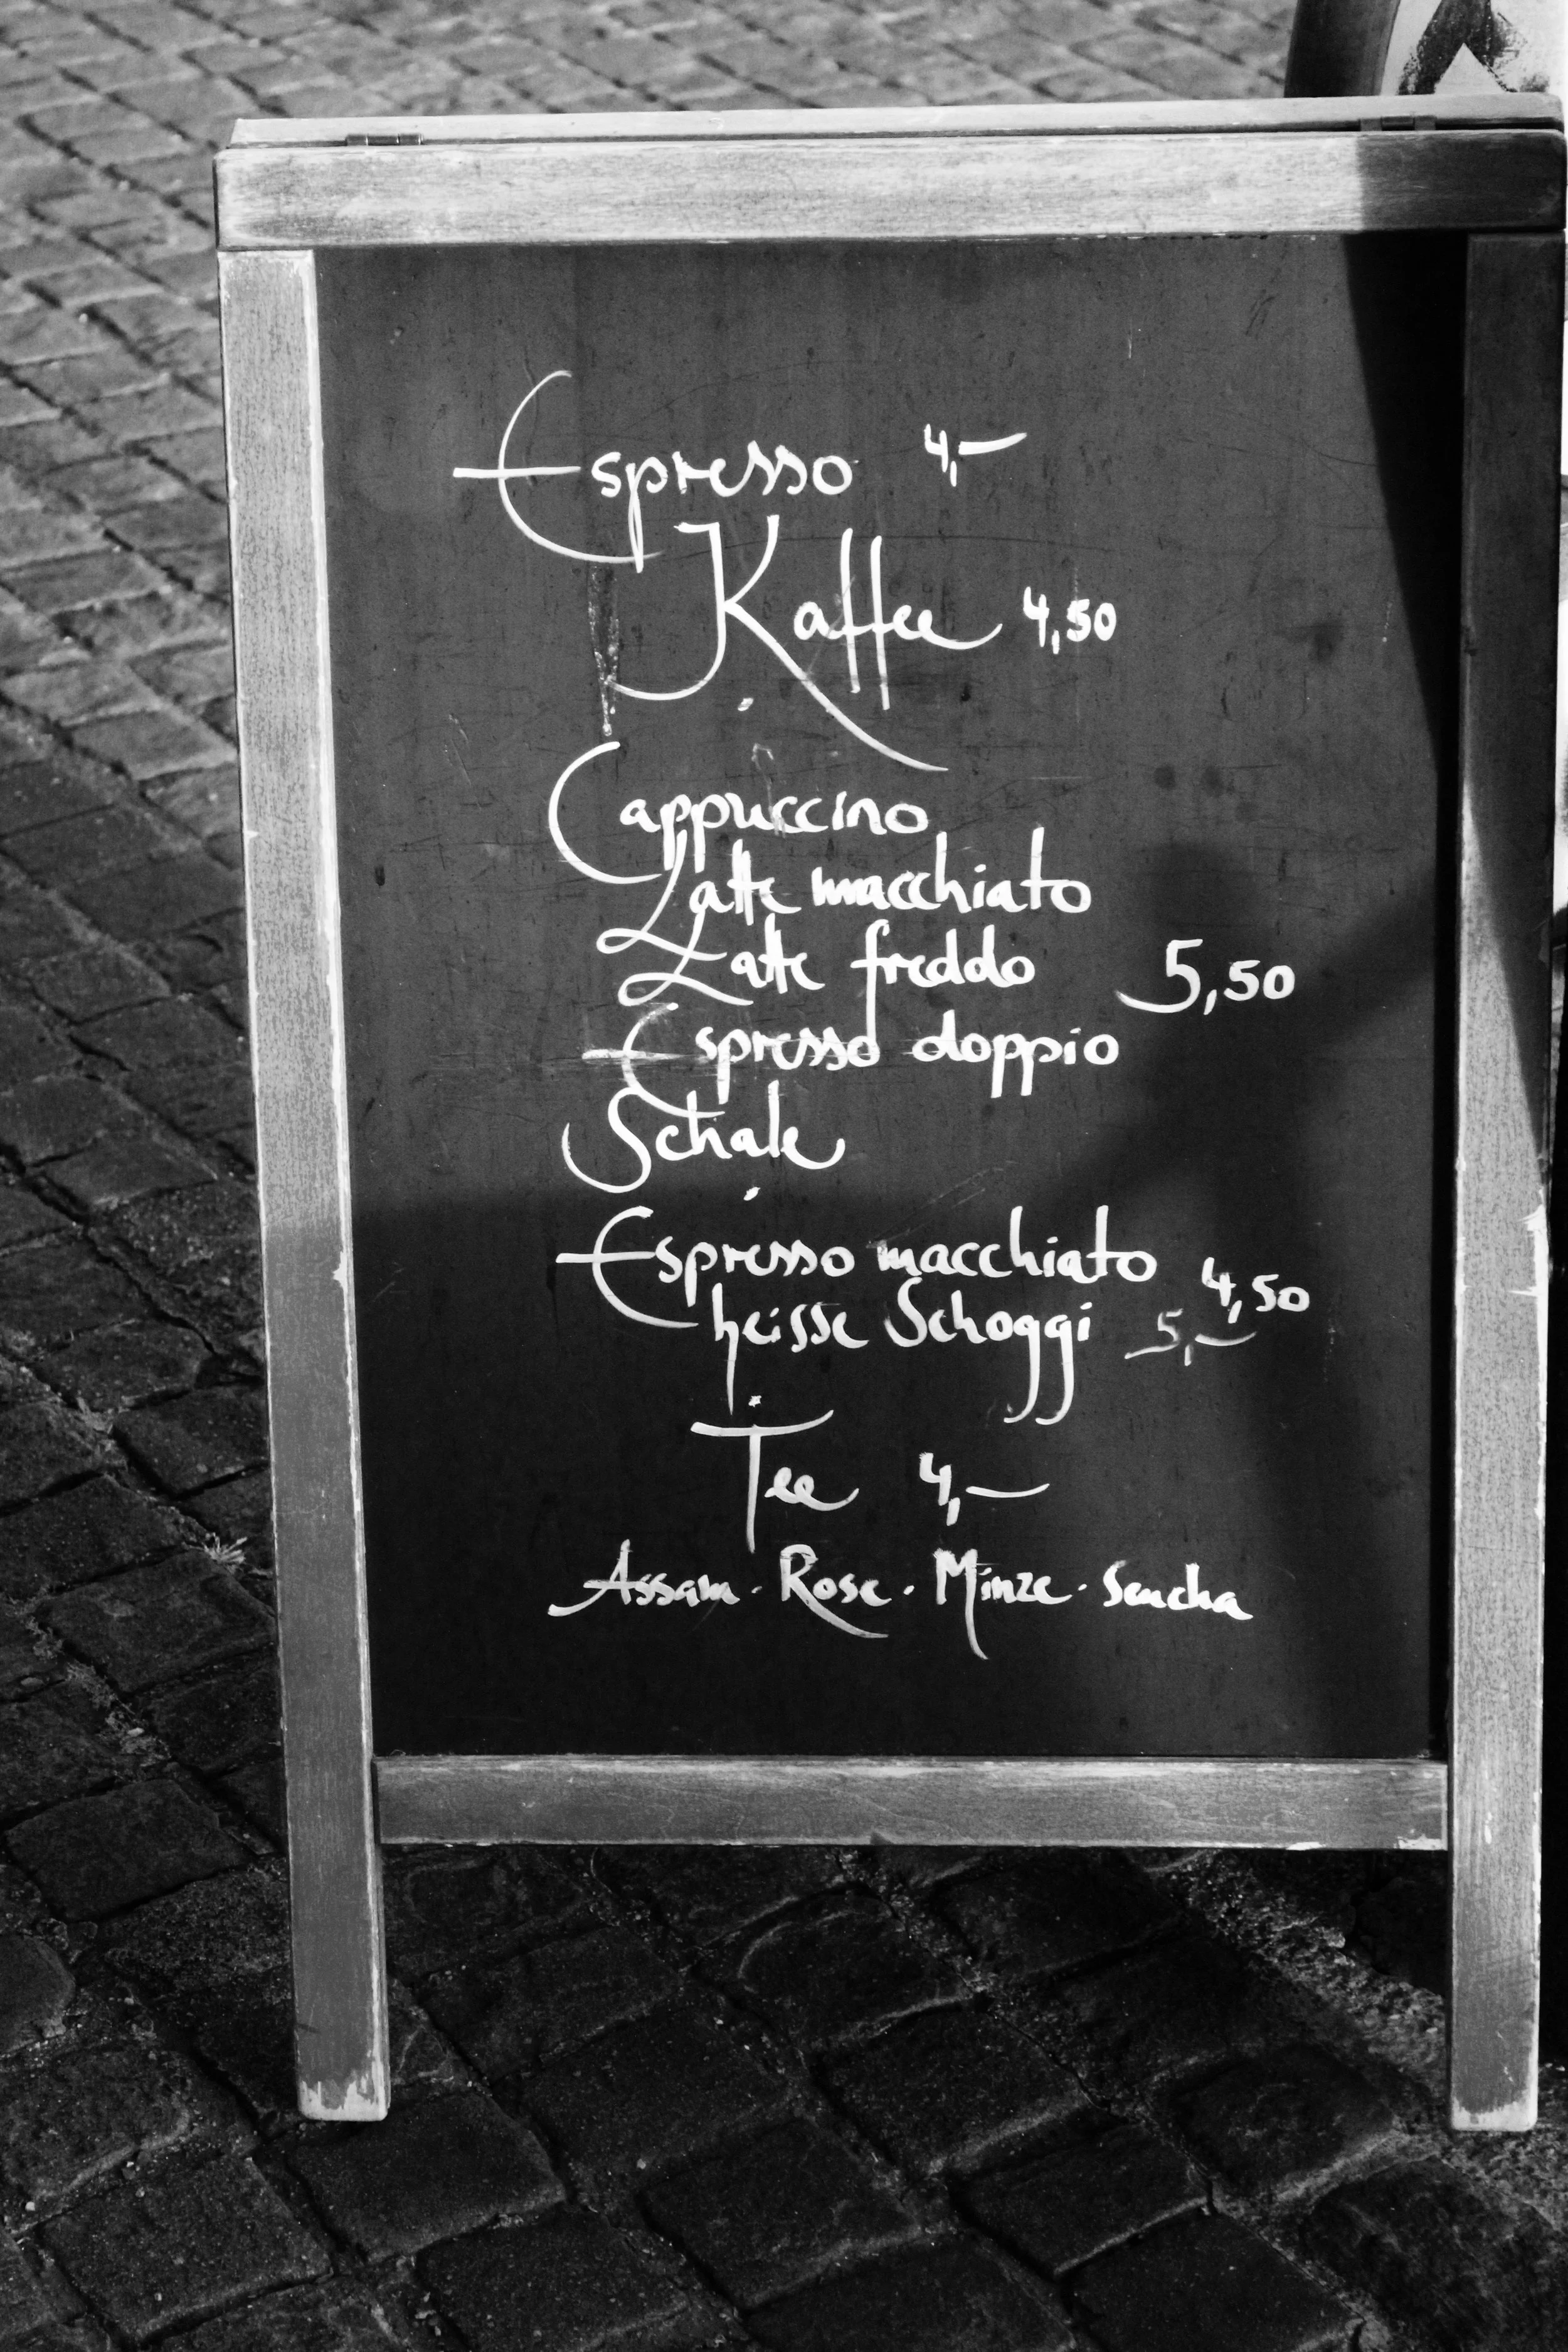 Espresso 4,-
Kaffee 4,50
Cappuccino
Latte macchiato
Latte freddo 5,50
Espresso doppio
Schale
Espresso macchiato 4,50
heisse Schoggi 5,-
Tee 4,-
Assam · Rose · Minze · Sencha